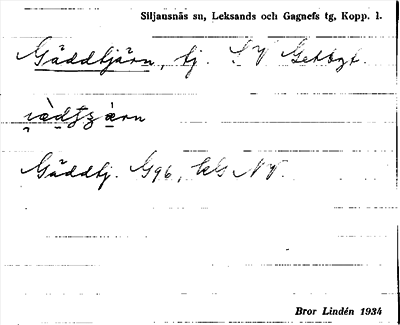 Siljansnäs sn, Leksands och Gagnefs tg, Kopp. l.
Gäddtjärn, tj. SV Getbyt.
Gäddtj. G96, kG NV.
Bror Lindén 1934